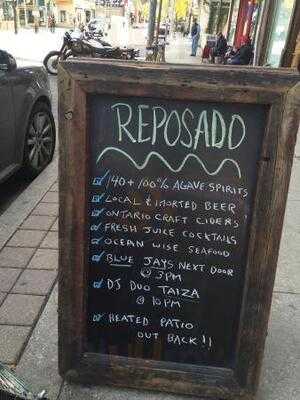 REPOSADO
140+ 100% AGAVE SPIRITS
LOCAL & IMPORTED BEER
ONTARIO CRAFT CIDERS
FRESH JUICE COCKTAILS
OCEAN WISE SEAFOOD
BLUE JAYS NEXT DOOR
@ 3PM
DJ DUO TAIZA
@ 10PM
HEATED PATIO
OUT BACK!!